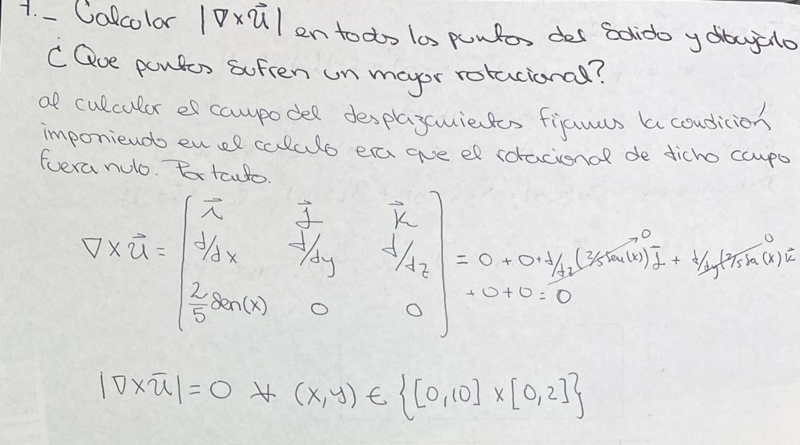 7.- Calcular |∇×ū| en todos los puntos del Sólido y dibujarlo
¿ Que puntos sufren un mayor rotacional?
al calcular el campo del desplazamientos fijamos la condición
imponiendo en el calculo era que el rotacional de dicho campo
fuera nulo. Por tanto.
∇×ū = | i⃗ j⃗ k⃗ | = 0 + 0 + d/dz (2/5 sen(x)) j⃗ + d/dy (2/5 sen(x)) k⃗
| d/dx d/dy d/dz | + 0 + 0 = 0
| 2/5 sen(x) 0 0 |
|∇×ū| = 0 ∀ (x,y) ∈ {[0,10] × [0,2]}